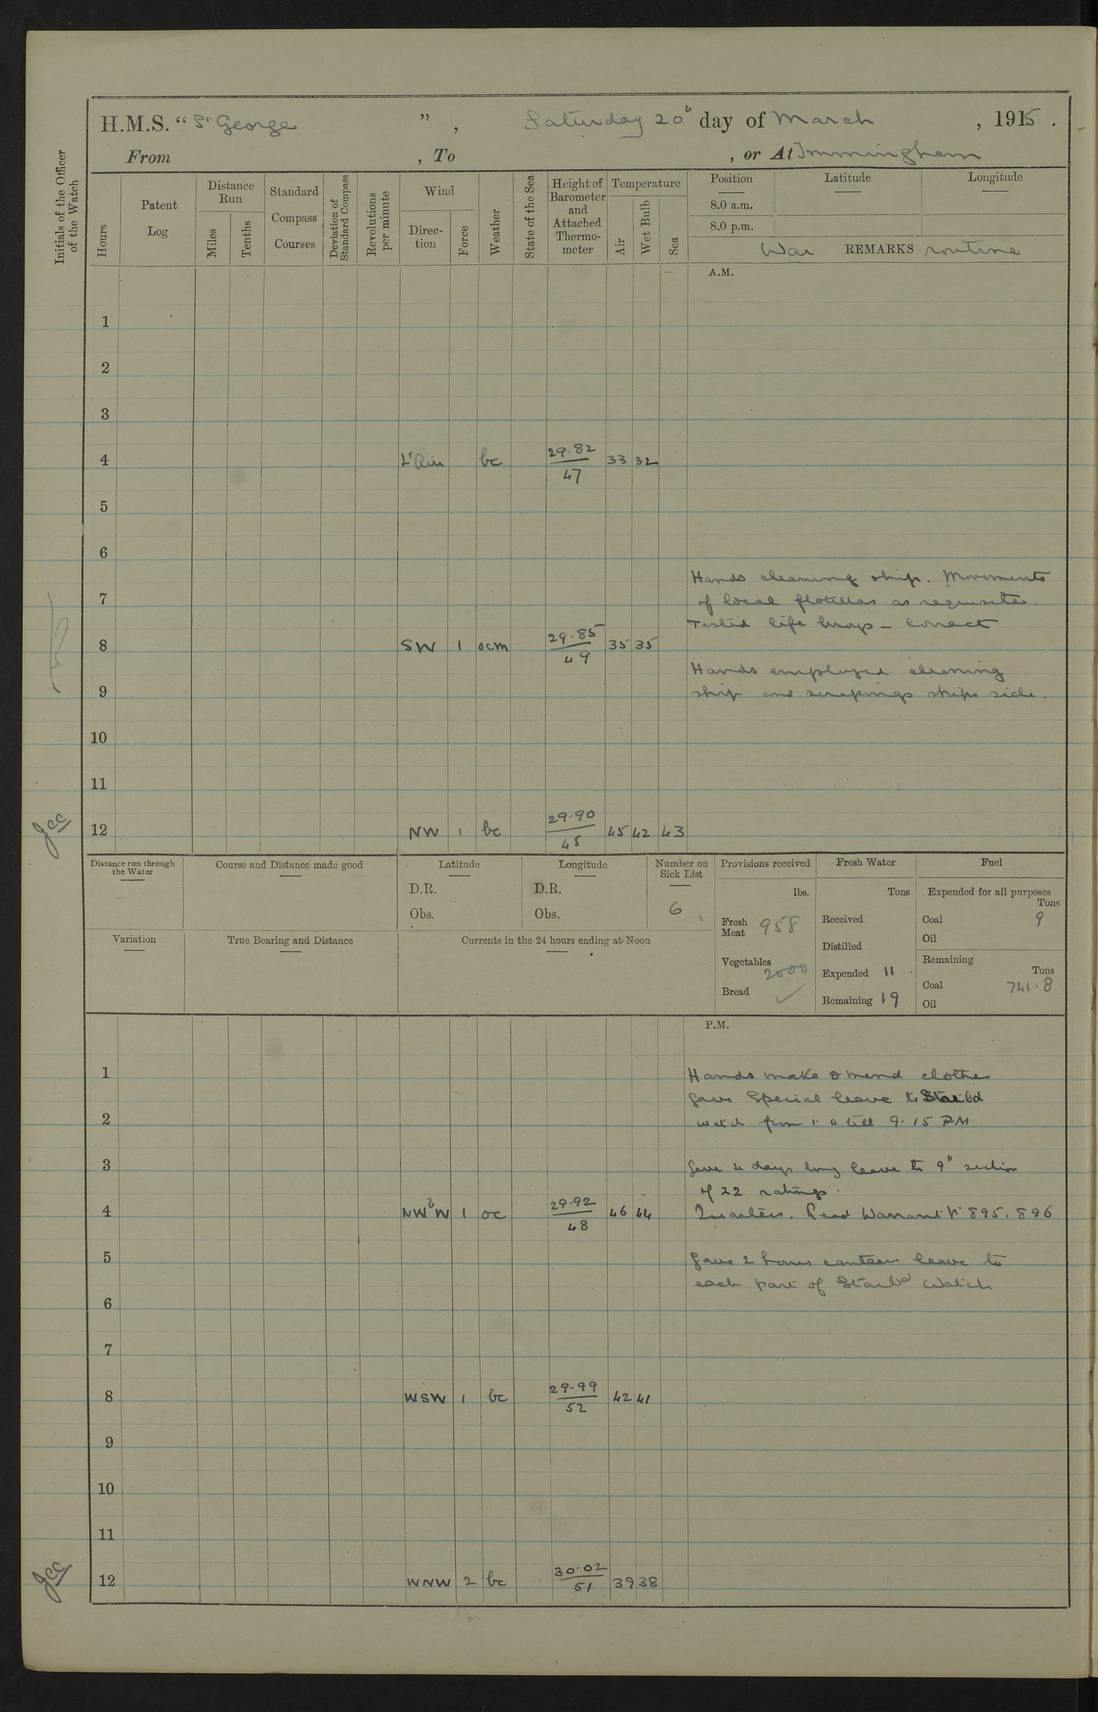 H.M.S. "St George", Saturday 20th day of March, 1915.
From , To , or At Immingham
Initials of the Officer of the Watch
Hours
Patent Log
Distance Run
Miles
Tenths
Standard Compass Courses
Deviation of Standard Compass
Revolutions per minute
Wind
Direction
Force
Weather
State of the Sea
Height of Barometer and Attached Thermometer
Temperature
Air
Wet Bulb
Sea
Position Latitude Longitude
8.0 a.m.
8.0 p.m.
War REMARKS routine
A.M.
1
2
3
4 Lt Airs bc 29.82/47 33 32
5
6
Hands cleaning ship. Movements
7 of local flotillas as requisite.
Tested life buoys - correct
8 SW 1 ocm 29.85/49 35 35
Hands employed cleaning
9 ship and scrapings ships side.
10
11
12 NW 1 bc 29.90/45 45 42 43
Jcc
Distance run through the Water
Course and Distance made good
Latitude
D.R.
Obs.
Longitude
D.R.
Obs.
Number on Sick List
6
Provisions received
lbs.
Fresh Meat 958
Vegetables 2000
Bread ✓
Fresh Water
Tons
Received
Distilled
Expended 11
Remaining 19
Fuel
Expended for all purposes
Tons
Coal 9
Oil
Remaining
Tons
Coal 741.8
Oil
Variation
True Bearing and Distance
Currents in the 24 hours ending at Noon
P.M.
1 Hands make & mend clothes
Gave Special leave to Starbd
2 watch from 1.0 till 9.15 PM
3 Gave 4 days long leave to 9th section
of 22 ratings.
4 NWbW 1 oc 29.92/48 46 44 Quarters. Read Warrant No 895. 896
5 Gave 2 hours canteen leave to
each part of Starbd Watch
6
7
8 WSW 1 bc 29.99/52 42 41
9
10
11
12 WNW 2 bc 30.02/51 39 38
Jcc